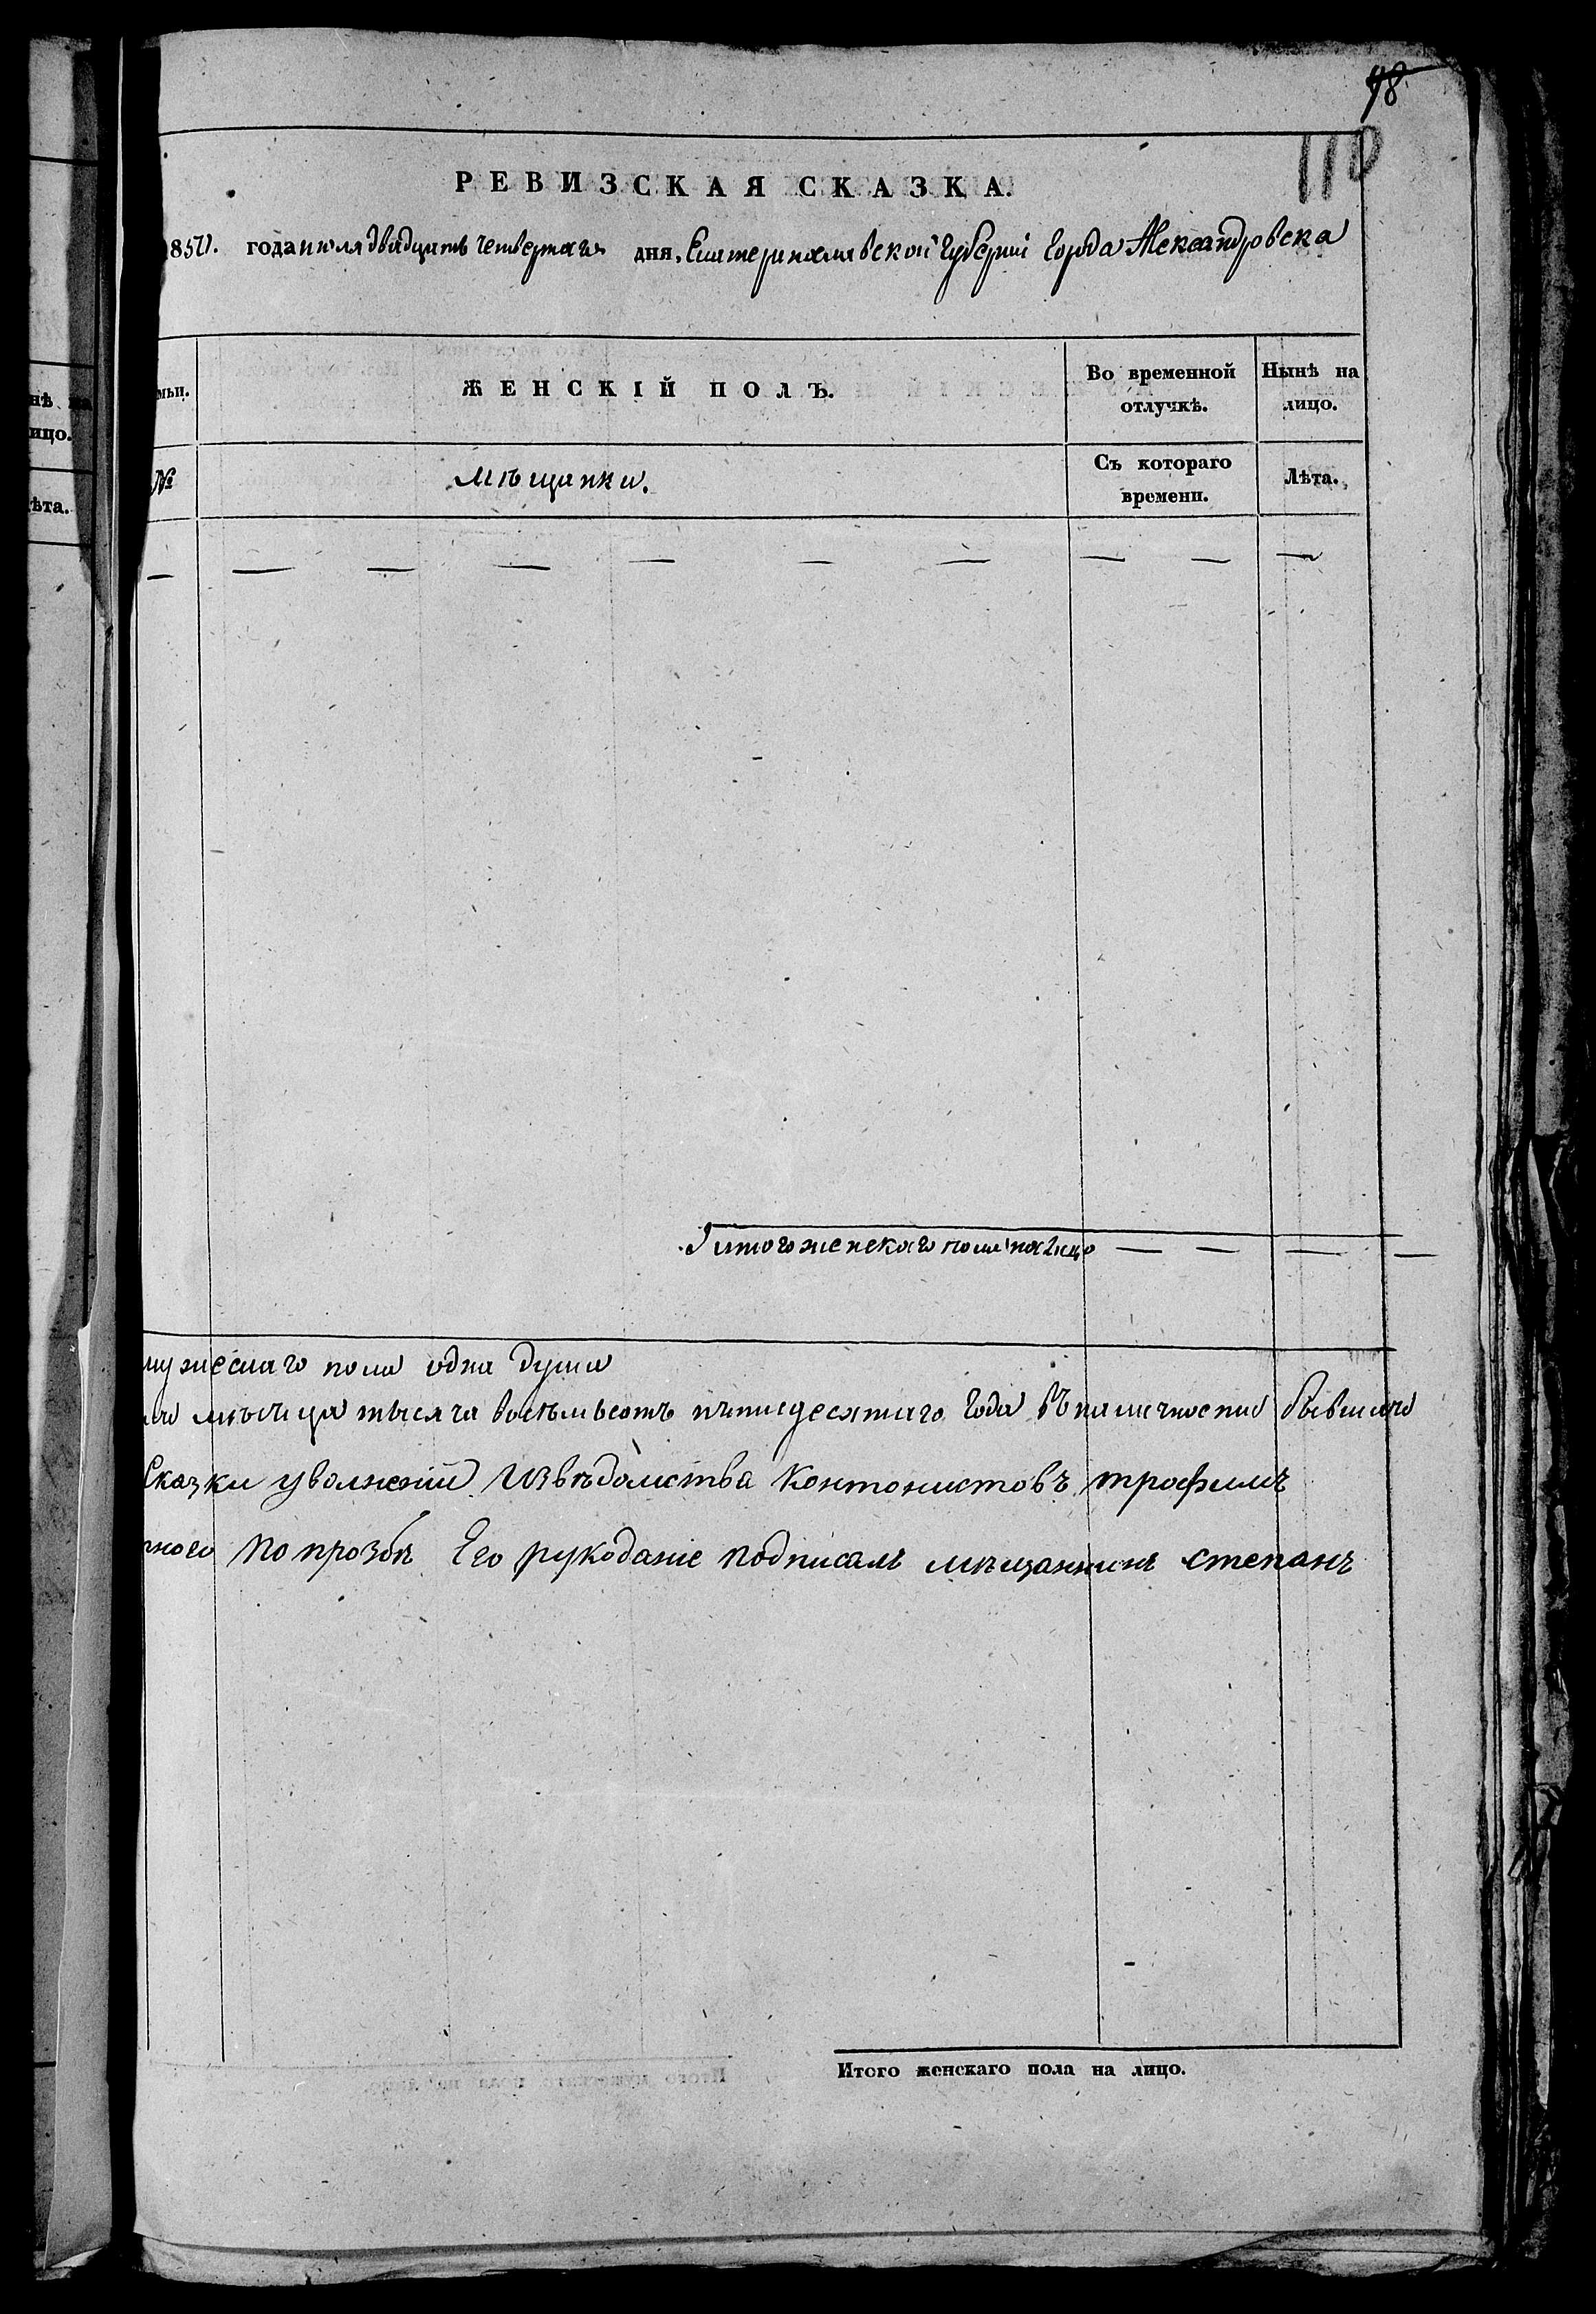 98
110
РЕВИЗСКАЯ СКАЗКА.
850. года июля двадцать четвертаго дня, Екатеринославской губернии города Александровска
мьи. ЖЕНСКІЙ ПОЛЪ. Во временной отлучкѣ. Нынѣ на лицо.
№ мѣщанки. Съ котораго времени. Лѣта.
нѣ на
ицо.
ѣта.
Итого женскаго пола на лицо — — — —
мужескаго пола одна душа
мѣсяца тысяча восемьсотъ пятидесятаго года въ наличности бывшихъ
Сказки уволненій изъ вѣдомства Контонистовъ трофимъ
по прозбѣ Его рукоданіе подписалъ мѣщанинъ степанъ
Итого женскаго пола на лицо.